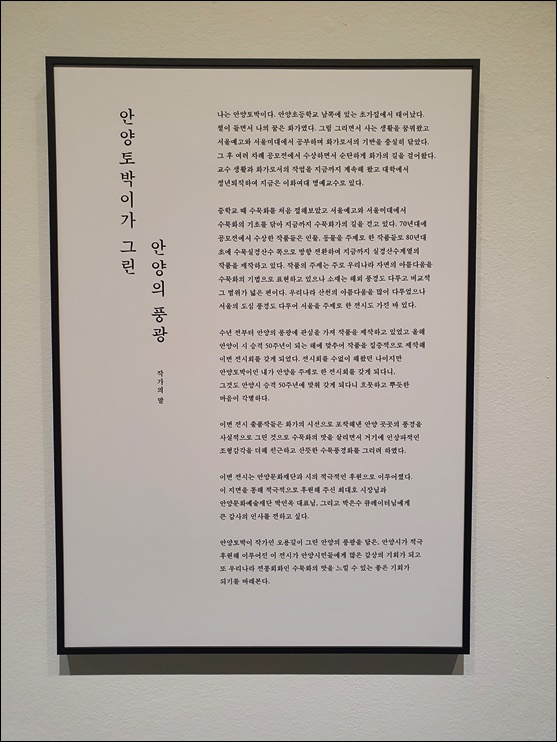 안양토박이가 그린
안양의 풍광
작가의 말
나는 안양토박이다. 안양초등학교 남쪽에 있는 초가집에서 태어났다.
철이 들면서 나의 꿈은 화가였다. 그림 그리면서 사는 생활을 꿈꿔왔고
서울예고와 서울미대에서 공부하며 화가로서의 기반을 충실히 닦았다.
그 후 여러 차례 공모전에서 수상하면서 순탄하게 화가의 길을 걸어왔다.
교수 생활과 화가로서의 작업을 지금까지 계속해 왔고 대학에서
정년퇴직하여 지금은 이화여대 명예교수로 있다.
중학교 때 수묵화를 처음 접해보았고 서울예고와 서울미대에서
수묵화의 기초를 닦아 지금까지 수묵화가의 길을 걷고 있다. 70년대에
공모전에서 수상한 작품들은 인물, 동물을 주제로 한 작품들로 80년대
초에 수묵실경산수 쪽으로 방향 전환하여 지금까지 실경산수계열의
작품을 제작하고 있다. 작품의 주제는 주로 우리나라 자연의 아름다움을
수묵화의 기법으로 표현하고 있으나 소재는 해외 풍경도 다루고 비교적
그 범위가 넓은 편이다. 우리나라 산천의 아름다움을 많이 다루었으나
서울의 도심 풍경도 다루어 서울을 주제로 한 전시도 가진 바 있다.
수년 전부터 안양의 풍광에 관심을 가져 작품을 제작하고 있었고 올해
안양이 시 승격 50주년이 되는 해에 맞추어 작품을 집중적으로 제작해
이번 전시회를 갖게 되었다. 전시회를 수없이 해왔던 나이지만
안양토박이인 내가 안양을 주제로 한 전시회를 갖게 되다니,
그것도 안양시 승격 50주년에 맞춰 갖게 되다니 흐뭇하고 뿌듯한
마음이 각별하다.
이번 전시 출품작들은 화가의 시선으로 포착해낸 안양 곳곳의 풍경을
사실적으로 그린 것으로 수묵화의 맛을 살리면서 거기에 인상파적인
조형감각을 더해 친근하고 산뜻한 수묵풍경화를 그리려 하였다.
이번 전시는 안양문화재단과 시의 적극적인 후원으로 이루어졌다.
이 지면을 통해 적극적으로 후원해 주신 최대호 시장님과
안양문화예술재단 박인옥 대표님, 그리고 박은수 큐레이터님에게
큰 감사의 인사를 전하고 싶다.
안양토박이 작가인 오용길이 그린 안양의 풍광을 담은, 안양시가 적극
후원해 이루어진 이 전시가 안양시민들에게 많은 감상의 기회가 되고
또 우리나라 전통회화인 수묵화의 맛을 느낄 수 있는 좋은 기회가
되기를 바래본다.